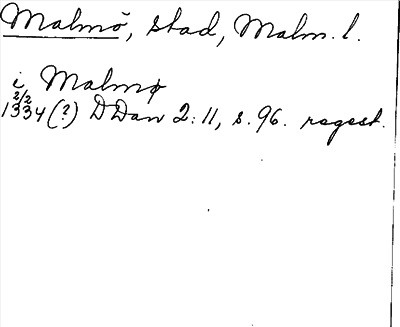 Malmö, stad, Malm. l.
i Malmø
2/2
1334 (?) DDan 2:11, s. 96. regest.